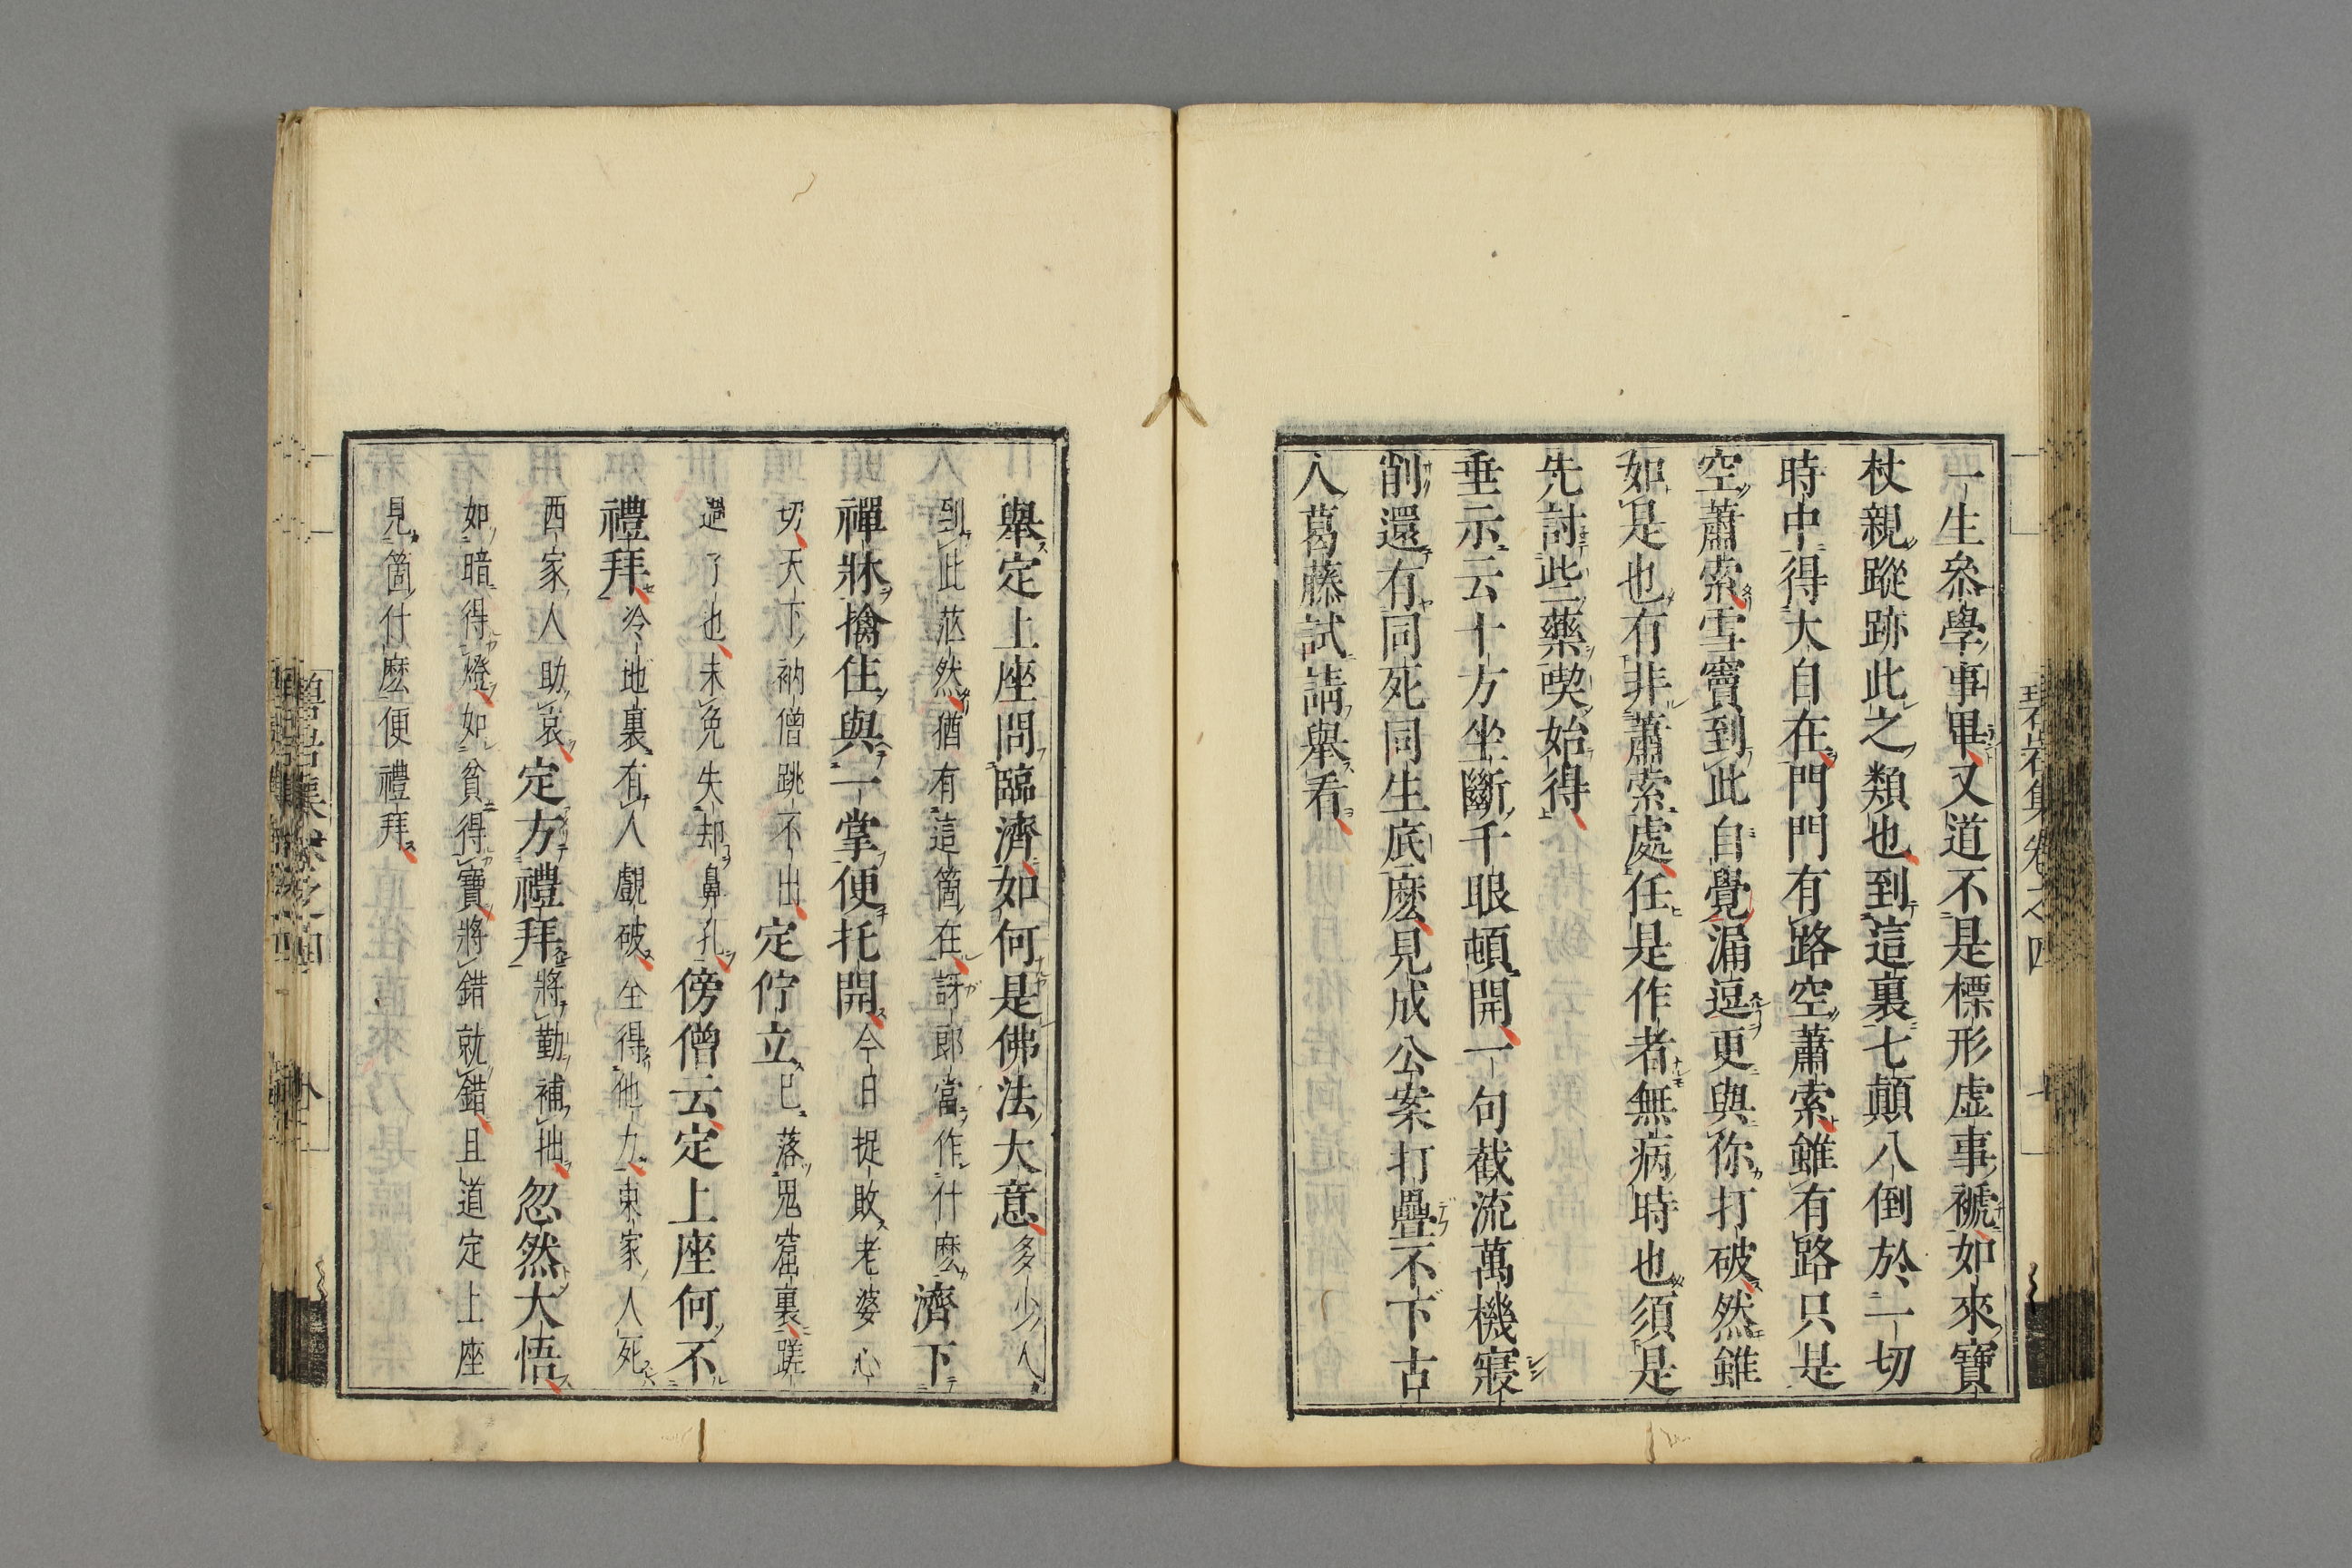 一生叅學事畢又道不是標形虛事褫如來寶
杖親蹤跡此之類也到這裏七顛八倒於一切
時中得大自在門門有路空蕭索雖有路只是
空蕭索雪竇到此自覺漏逗更與你打破然雖
如是也有非蕭索處任是作者無病時也須是
先討些藥喫始得
垂示云十方坐斷千眼頓開一句截流萬機寢
削還有同死同生底麽見成公案打疊不下古
人葛藤試請舉看
碧岩集卷之四
舉定上座問臨濟如何是佛法大意多少人
到此茫然猶有這箇在訝郎當作什麽濟下
禪牀擒住與一掌便托開今日捉敗老婆心
切天下衲僧跳不出定佇立已落鬼窟裏蹉
過了也未免失却鼻孔傍僧云定上座何不
禮拜冷地裏有人覷破全得他力東家人死
西家人助哀定方禮拜將勤補拙忽然大悟
如暗得燈如貧得寶將錯就錯且道定上座
見箇什麽便禮拜
碧岩集卷之四
八